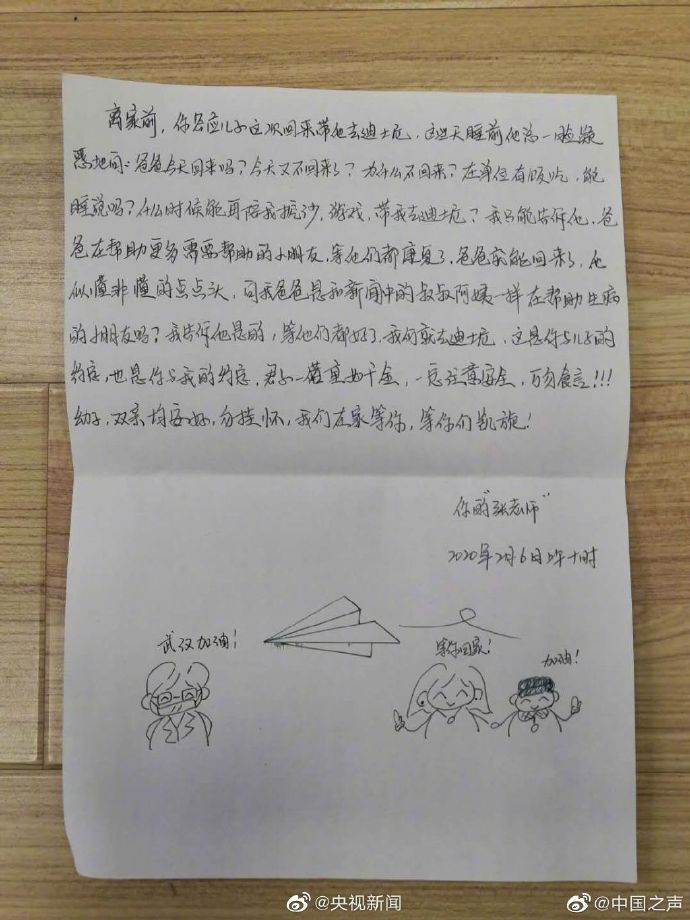 离家前，你答应儿子这次回来带他去迪士尼，这些天睡前他总一脸疑
惑地问：爸爸今天回来吗？今天又不回来了？为什么不回来？在单位有饭吃，能
睡觉吗？什么时候能再陪我挖沙，游戏，带我去迪士尼？我只能告诉他，爸
爸在帮助更多需要帮助的小朋友，等他们都康复了，爸爸就能回来了，他
似懂非懂的点点头，问我爸爸是和新闻中的叔叔阿姨一样在帮助生病
的小朋友吗？我告诉他是的，等他们都好了，我们就去迪士尼，这是你与儿子的
约定，也是你与我的约定，君子一诺重如千金，一定注意安全，万勿食言！！！
幼子，双亲均安好，勿挂怀，我们在家等你，等你们凯旋！
你的“张老师”
2020年2月6日上午十时
武汉加油！
等你回家！
加油！
@央视新闻
@中国之声